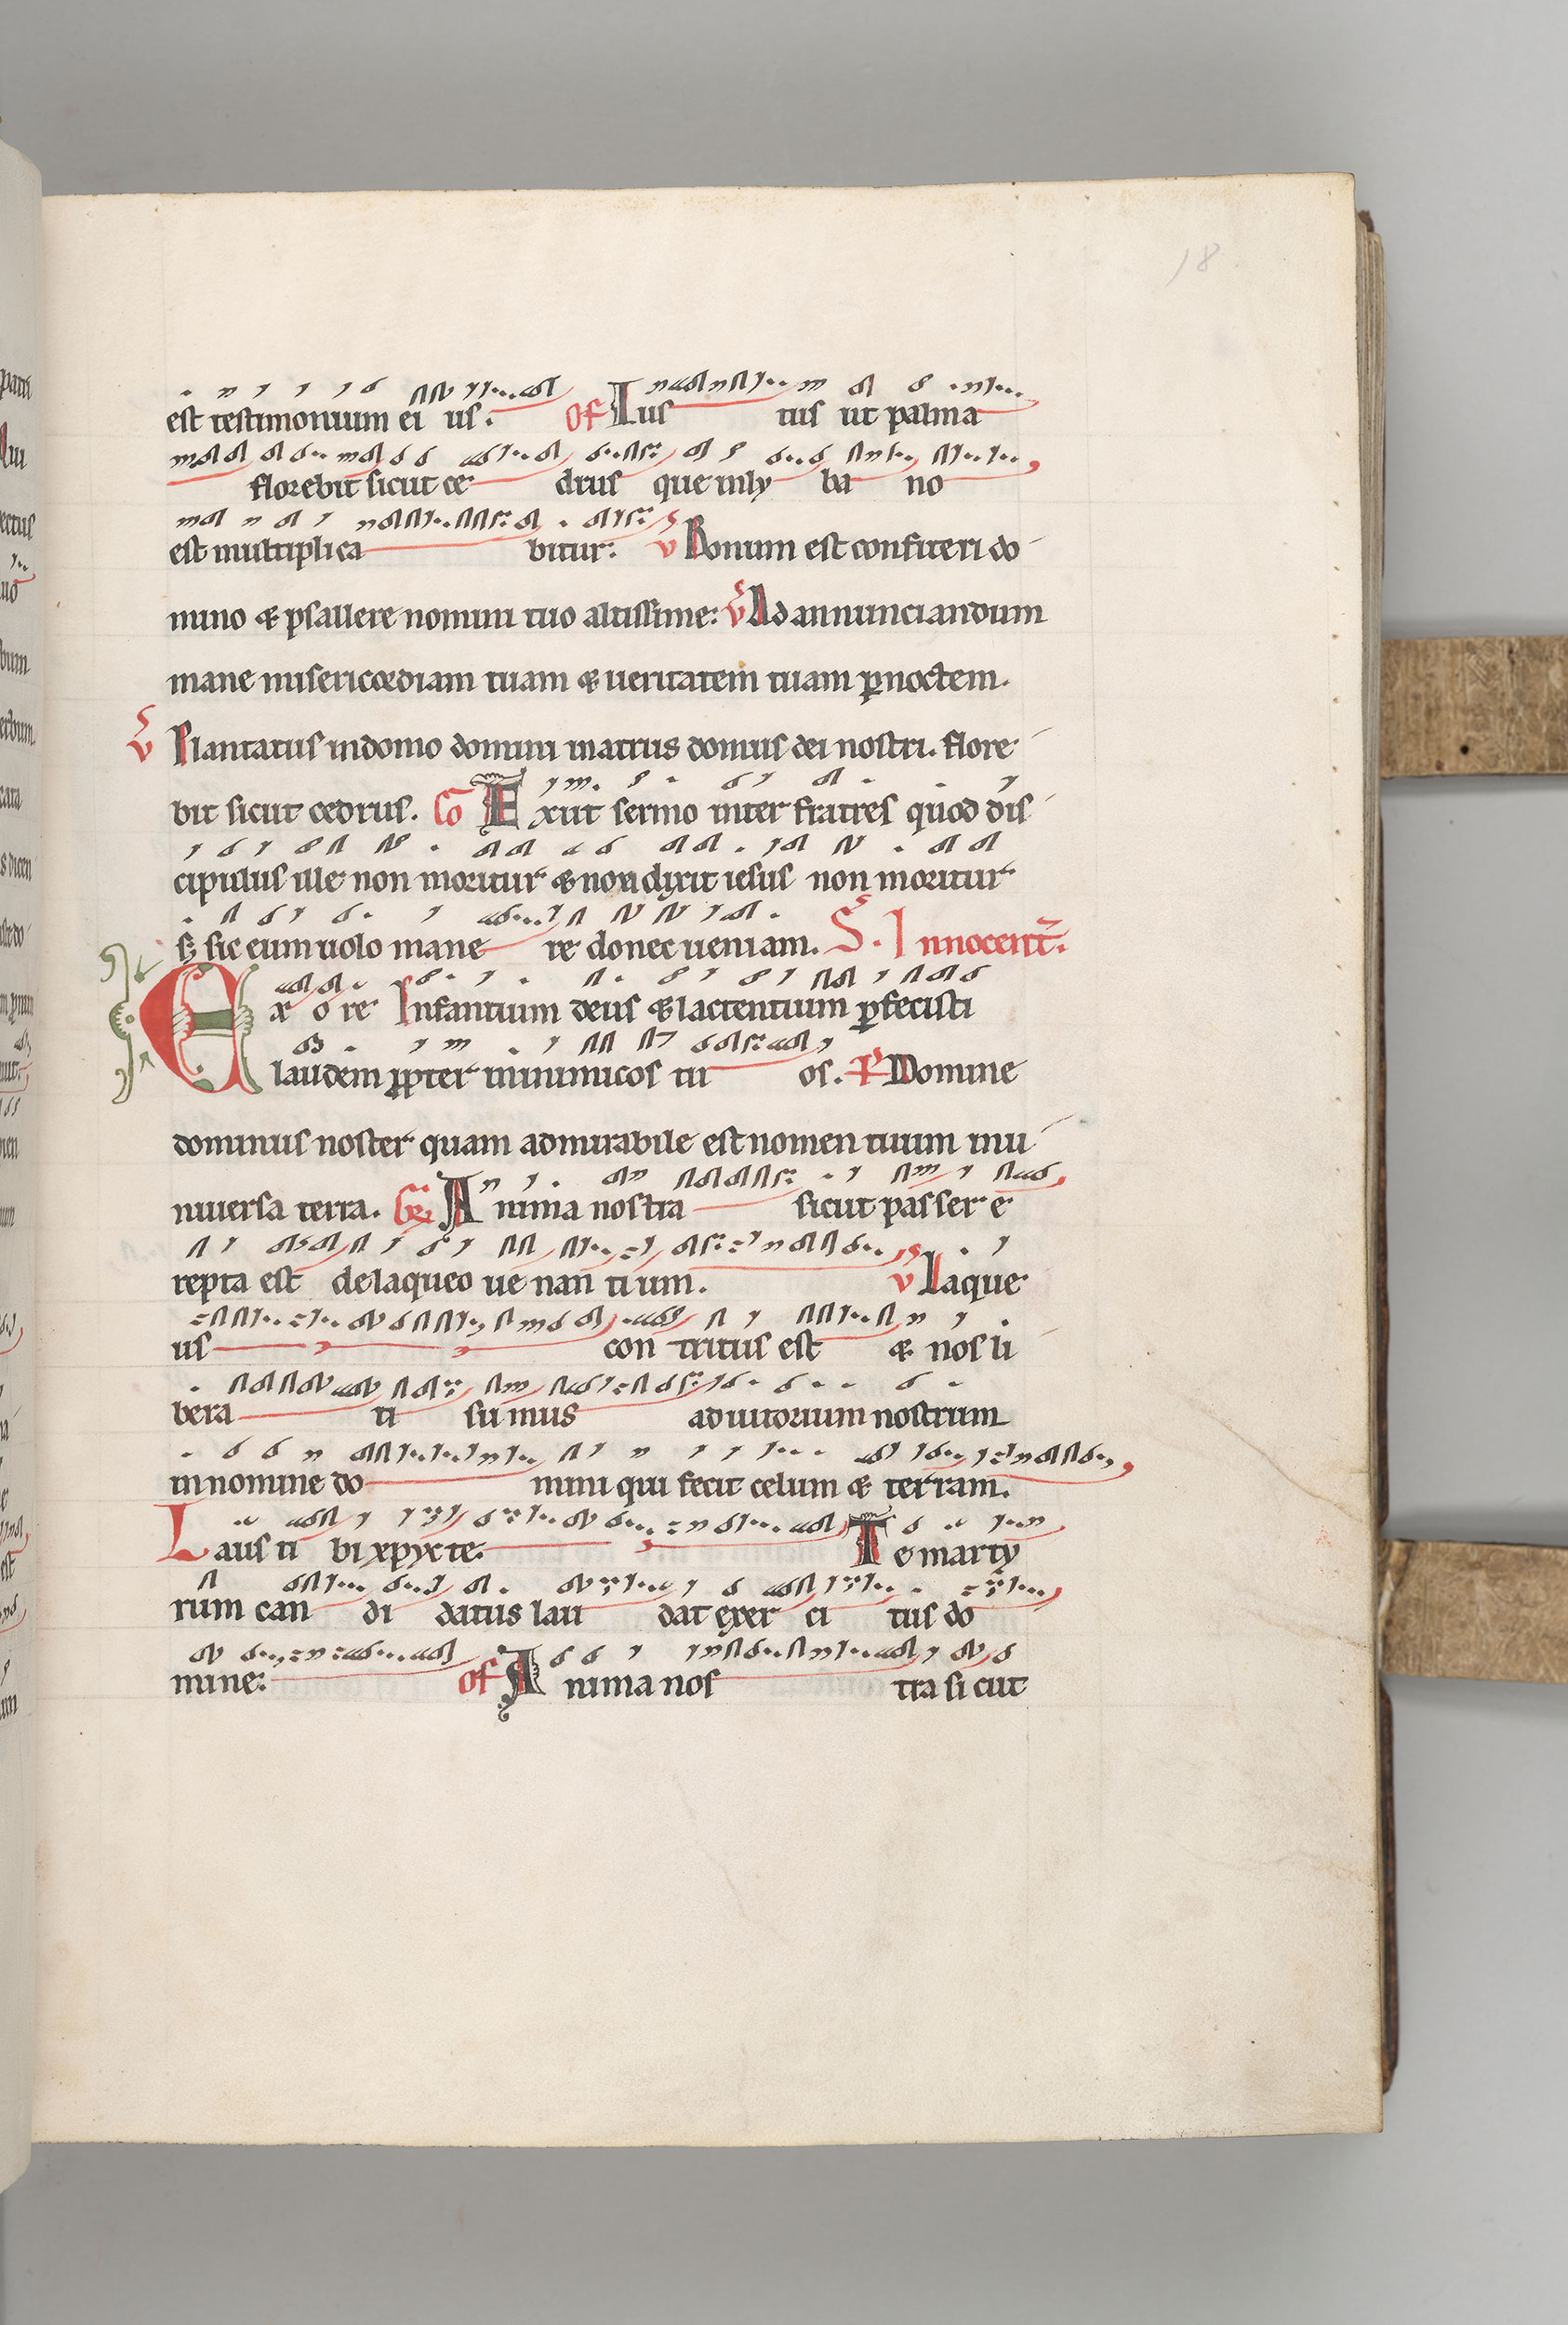 18
est testimonium ei us. Of Ius tus ut palma
florebit sicut ce drus que inly ba no
est multiplica bitur: V Bonum est confiteri do
mino & psallere nomini tuo altissime: V Ad annunciandum
mane misericordiam tuam & ueritatem tuam pnoctem.
V Plantatus indomo domini inatriis domus dei nostri. flore
bit sicut cedrus. Co Exiit sermo inter fratres quod dis
cipulus ille non moritur & non dixit iesus non moritur
sꝫ sic eum uolo mane re donec ueniam. S. Innocent.
Ex o re Infantium deus & lactentium pfecisti
laudem ppter inimicos tu os. P Domine
dominus noster quam admirabile est nomen tuum inu
niuersa terra. Gr. A nima nostra sicut passer e
repta est de laqueo ue nan tium. V Laque
us con tritus est & nos li
bera ti su mus adiutorium nostrum
innomine do mini qui fecit celum & terram.
Laus ti bi xpycte. Te marty
rum can di datus lau dat exer ci tus do
mine: Of A nima nos tra si cut